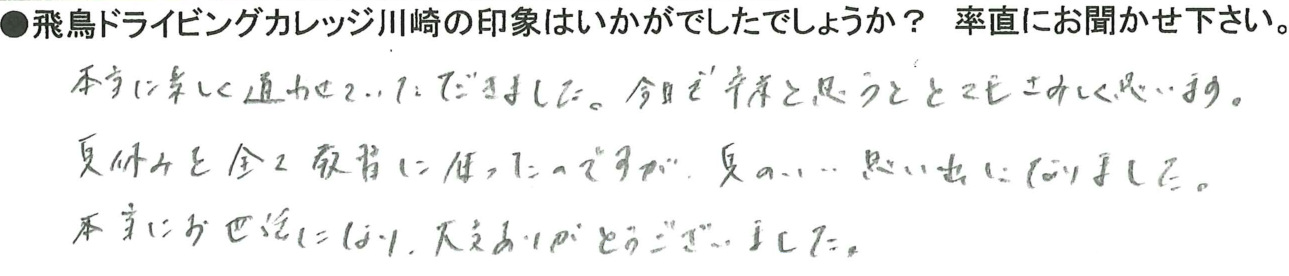 ●飛鳥ドライビングカレッジ川崎の印象はいかがでしたでしょうか？ 率直にお聞かせ下さい。
本当に楽しく通わせていただきました。今日で卒業と思うととてもさみしく思います。
夏休みを全て教習に使ったのですが、夏のいい思い出になりました。
本当にお世話になり、大変ありがとうございました。